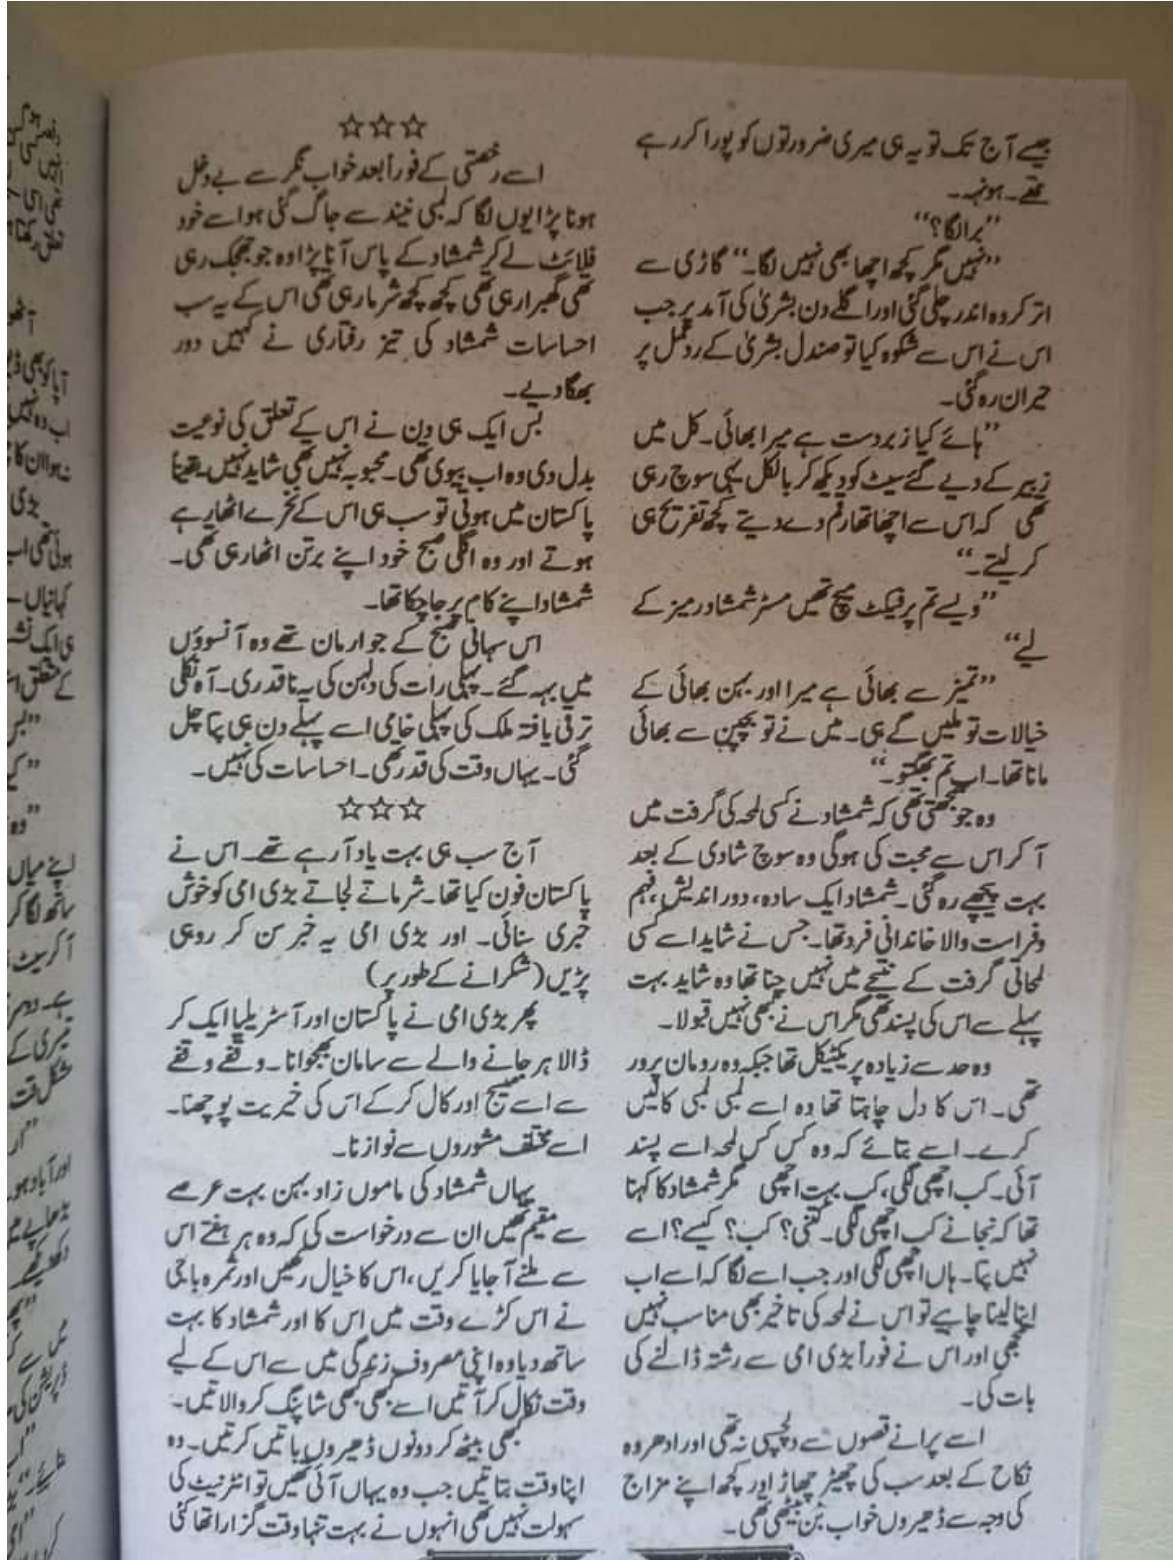 جیسے آج تک تو یہ ہی میری ضرورتوں کو پورا کر رہے
تھے۔ ہونہہ۔
”برا لگا؟“
”نہیں مگر کچھ اچھا بھی نہیں لگا۔“ گاڑی سے
اتر کر وہ اندر چلی گئی اور اگلے دن بشریٰ کی آمد پر جب
اس نے اس سے شکوہ کیا تو صندل بشریٰ کے ردعمل پر
حیران رہ گئی۔
”ہائے کیا زبردست ہے میرا بھائی۔ کل میں
زبیر کے دیے گئے سیٹ کو دیکھ کر بالکل یہی سوچ رہی
تھی کہ اس سے اچھا تھا رقم دے دیتے کچھ تفریح ہی
کر لیتے۔“
”ویسے تم پرفیکٹ میچ تھیں مسٹر شمشاد رمیز کے
لیے“
”تمیز سے بھائی ہے میرا اور بہن بھائی کے
خیالات تو ملیں گے ہی۔ میں نے تو بچپن سے بھائی
مانا تھا۔ اب تم بھگتو۔“
وہ جو سمجھتی تھی کہ شمشاد نے کسی لمحہ کی گرفت میں
آ کر اس سے محبت کی ہوگی وہ سوچ شادی کے بعد
بہت پیچھے رہ گئی۔ شمشاد ایک سادہ، دور اندیش، فہم
و فراست والا خاندانی فرد تھا۔ جس نے شاید اسے کسی
لمحاتی گرفت کے نتیجے میں نہیں چنا تھا وہ شاید بہت
پہلے سے اس کی پسند تھی مگر اس نے کبھی نہیں قبولا۔
وہ حد سے زیادہ پریکٹیکل تھا جبکہ وہ رومان پرور
تھی۔ اس کا دل چاہتا تھا وہ اسے لمبی لمبی کالیں
کرے۔ اسے بتائے کہ وہ کس کس لمحہ اسے پسند
آئی۔ کب اچھی لگی، کب بہت اچھی مگر شمشاد کا کہنا
تھا کہ نجانے کب اچھی لگی۔ کتنی؟ کب؟ کیسے؟ اسے
نہیں پتا۔ ہاں اچھی لگی اور جب اسے لگا کہ اسے اب
اپنا لینا چاہیے تو اس نے لمحہ کی تاخیر بھی مناسب نہیں
سمجھی اور اس نے فوراً بڑی امی سے رشتہ ڈالنے کی
بات کی۔
اسے پرانے قصوں سے دلچسپی نہ تھی اور ادھر وہ
نکاح کے بعد سب کی چھیڑ چھاڑ اور کچھ اپنے مزاج
کی وجہ سے ڈھیروں خواب بُن بیٹھی تھی۔
☆☆☆
اسے رخصتی کے فوراً بعد خواب نگر سے بے دخل
ہونا پڑا یوں لگا کہ لمبی نیند سے جاگ گئی ہو اسے خود
فلائٹ لے کر شمشاد کے پاس آنا پڑا وہ جو جھجک رہی
تھی گھبرا رہی تھی کچھ کچھ شرما رہی تھی اس کے یہ سب
احساسات شمشاد کی تیز رفتاری نے کہیں دور
بھگا دیے۔
بس ایک ہی دن نے اس کے تعلق کی نوعیت
بدل دی وہ اب بیوی تھی۔ محبوبہ نہیں تھی شاید نہیں یقیناً
پاکستان میں ہوتی تو سب ہی اس کے نخرے اٹھا رہے
ہوتے اور وہ اگلی صبح خود اپنے برتن اٹھا رہی تھی۔
شمشاد اپنے کام پر جا چکا تھا۔
اس سہانی صبح کے جو ارمان تھے وہ آنسوؤں
میں بہہ گئے۔ پہلی رات کی دلہن کی یہ ناقدری۔ آہ نکلی
ترقی یافتہ ملک کی پہلی خامی اسے پہلے دن ہی پتا چل
گئی۔ یہاں وقت کی قدر تھی۔ احساسات کی نہیں۔
☆☆☆
آج سب ہی بہت یاد آ رہے تھے۔ اس نے
پاکستان فون کیا تھا۔ شرماتے لجاتے بڑی امی کو خوش
خبری سنائی۔ اور بڑی امی یہ خبر سن کر رو ہی
پڑیں (شکرانے کے طور پر)
پھر بڑی امی نے پاکستان اور آسٹریلیا ایک کر
ڈالا ہر جانے والے سے سامان بھجوانا۔ وقفے وقفے
سے اسے میسج اور کال کر کے اس کی خیریت پوچھنا۔
اسے مختلف مشوروں سے نوازنا۔
یہاں شمشاد کی ماموں زاد بہن بہت عرصے
سے مقیم تھیں ان سے درخواست کی کہ وہ ہر ہفتے اس
سے ملنے آ جایا کریں، اس کا خیال رکھیں اور ثمرہ باجی
نے اس کڑے وقت میں اس کا اور شمشاد کا بہت
ساتھ دیا وہ اپنی مصروف زندگی میں سے اس کے لیے
وقت نکال کر آتیں اسے کبھی کبھی شاپنگ کروا لاتیں۔
کبھی بیٹھ کر دونوں ڈھیروں باتیں کرتیں۔ وہ
اپنا وقت بتاتیں جب وہ یہاں آئی تھیں تو انٹرنیٹ کی
سہولت نہیں تھی انہوں نے بہت تنہا وقت گزارا تھا کئی